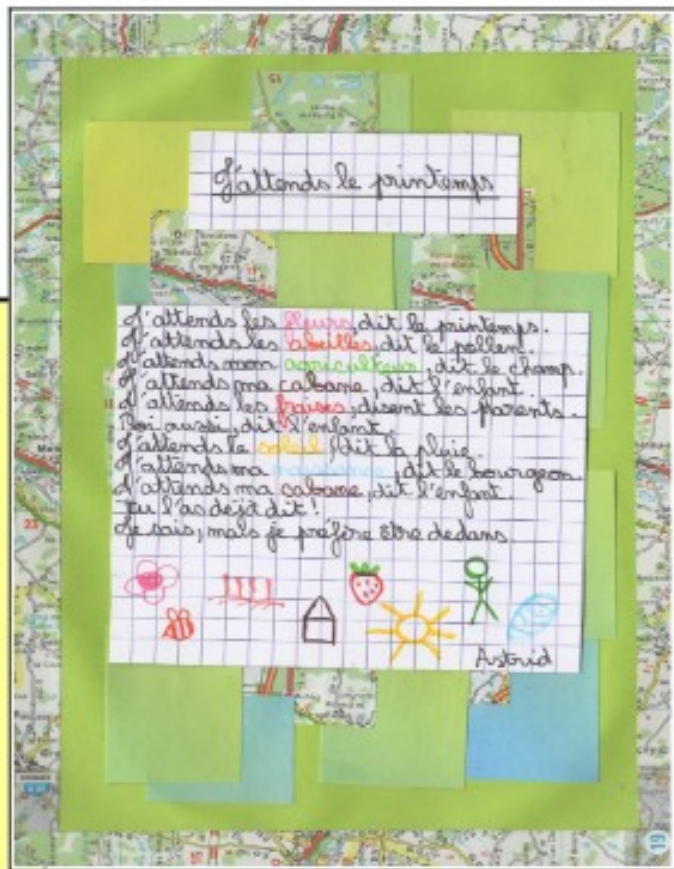 J'attends le printemps
J'attends les fleurs, dit le printemps.
J'attends les abeilles, dit le pollen.
J'attends mon agriculteur, dit le champ.
J'attends ma cabane, dit l'enfant.
J'attends les fraises, disent les parents.
Moi aussi, dit l'enfant.
J'attends le soleil, dit la pluie.
J'attends ma naissance, dit le bourgeon.
J'attends ma cabane, dit l'enfant.
Tu l'as dejà dit!
Je sais, mais je préfère être dedans
Astrid
19